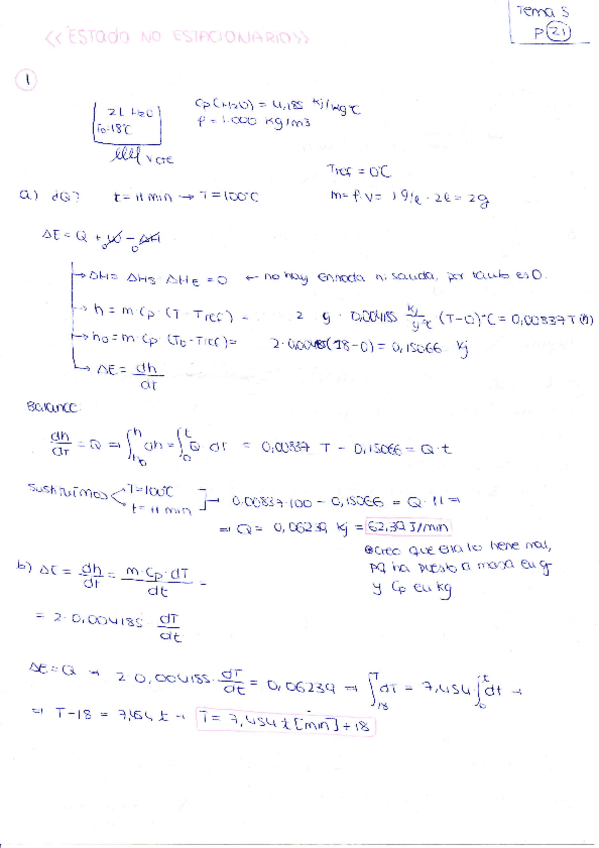 Tema 5
P 21
<<ESTADO NO ESTACIONARIO>>
1
2L H2O
T0=18ºC
Q cte
Cp(H2O) = 4,185 kJ/kgºC
ρ = 1.000 kg/m3
Tref = 0ºC
a) dQ? t = 11 min → T = 100ºC
m = ρ·V = 1 g/L · 2L = 2g
ΔE = Q + W - ΔH
0 0
→ ΔH = ΔHS ΔHE = 0 ← no hay entrada ni salida, por tanto es 0.
→ h = m·Cp·(T-Tref) = 2 g · 0,004185 kJ/gºC (T-0)ºC = 0,00837 T
→ h0 = m Cp (T0-Tref) = 2·0,004185(18-0) = 0,15066 kJ
→ ΔE = dh/dt
Balance:
dh/dt = Q ⇒ ∫h0h dh = ∫0t Q dt = 0,00837 T - 0,15066 = Q·t
Sustituimos T=100ºC t=11 min → 0.00837·100 - 0,15066 = Q·11 ⇒
⇒ Q = 0,06239 kJ = 62,39 J/min
Creo que esta lo tiene mal,
pq ha puesto la masa en g
y Cp en kg
b) ΔE = dh/dt = m·Cp·dT/dt =
= 2·0,004185 · dT/dt
ΔE = Q → 2·0,004185·dT/dt = 0,06239 → ∫18T dT = 7,454·∫0t dt →
⇒ T-18 = 7,454 t → T = 7,454 t [min] + 18